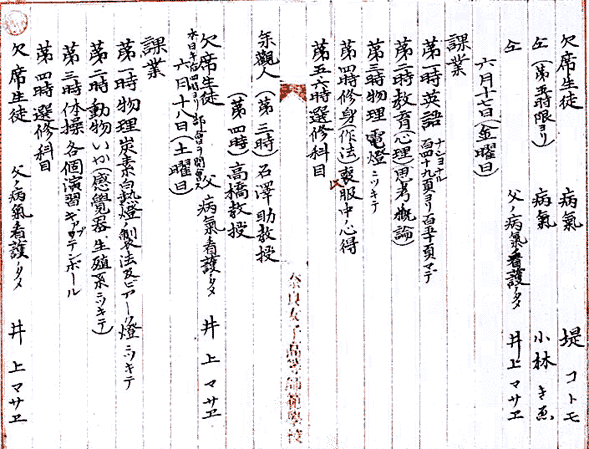 欠席生徒 病気 堤コトモ
仝(第五時限ヨリ) 病気 小林
仝 父ノ病気看護ノタメ 井上マサヱ
六月十七日(金曜日)
課業
第一時英語 ナショナル 百四十九頁ヨリ百五十頁マデ
第二時教育(心理)思考(概論)
第三時物理 電燈ニツキテ
第四時修身作法(喪服中ノ心得
第五六時選修科目
参観人(第三時)石澤助教授
(第四時)高橋教授
欠席生徒 父ノ病気看護ノタメ 井上マサヱ
六月十八日(土曜日)
課業
第一時物理炭素白熱燈ノ製法及ビアーク燈ニツキテ
第二時動物いか(感覚器生殖系ニツキテ)
第三時体操各個演習
第四時選修科目
欠席生徒 父ノ病気看護ノタメ 井上マサヱ
奈良女子高等師範学校